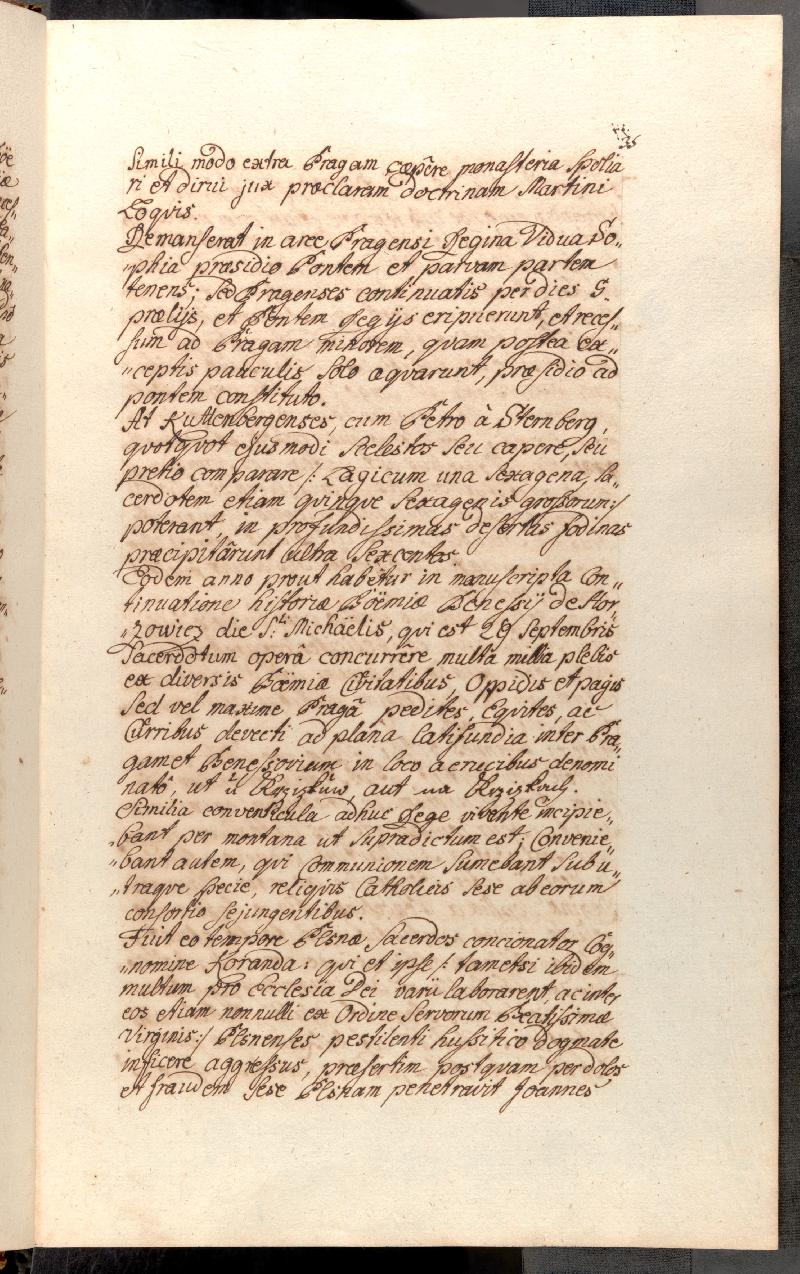 35
Simili modo extra Pragam cœpêre monasteria spolia
ri et dirui jux præclaram doctrinam Martini
Loqvis.
Remanserat in arce Pragensi Regina Vidua So„
„phia præsidio Pontem et parvam partem
tenens; sed Pragenses continuatis per dies 5.
prælijs, et Pontem Regijs eripuerunt, et reces„
sum ad Pragam minorem, qvam postea ex„
„ceptis pauculis solo æqvarunt, præsidio ad
pontem constituto.
At Kuttenbergenses, cum Petro à Sternberg,
qvotqvot ejusmodi scelestos seu capere, seu
pretio comparare /: Laicum una sexagena, sa„
cerdotem etiam qvinqve sexagenis grossorum :/
poterant, in profundissimas desertas fodinas
præcipitârunt ultra sexcentos.
Eodem anno prout habêtur in manuscripta Con„
tinuatione historiæ Boëmiæ Benessij de Hor„
„zowicz die S:ti Michaëlis, qvi est 29 Septembris
Sacerdotum operâ concurrêre multa millia plebis
ex diversis Boëmiæ Civitatibus, Oppidis et pagis
sed vel maxime Pragâ pedites, Eqvites, ac
Curribus devecti ad plana latifundia inter Pra„
gam et Benessovium in loco a crucibus denomi
natô, ut u Krzizkuw, aut na Krzizkach.
Similia conventicula adhuc Rege vivente incipie„
„bant per montana ut supradictum est; Convenie„
„bant autem, qvi Communionem sumebant sub u„
„traqve specie, reliqvis Catholicis sese ab eorum
consortio sejungentibus.
Fuit eo tempore Plsnæ Sacerdos concionator Cog„
„nomine Koranda: qvi et ipse /: tametsi ibidem
multum pro Ecclesia Dei varii laborarent, ac inter
eos etiam nonnulli ex Ordine Servorum Beatissimæ
Virginis :/ Plsnenses pestilenti hussitico dogmate
inficere aggressus, præsertim postqvam per dolos
et fraudem sese Plsnam penetravit Joannes